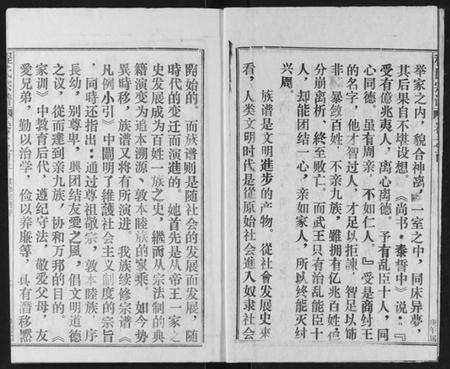 举家之内，貌合神离，一室之中，同床异夢，
其后果自不堪设想。《尚书·泰誓中》说：『
受有億兆夷人，离心离德。予有乱臣十人，同
心同德。虽有周亲，不如仁人。』受是商纣王
的名字，他才智过人，才足以拒諫，智足以饰
非，暴敛百姓，不亲九族，雖拥有亿兆百姓，
分崩离析，終至败亡。而武王只有治乱能臣十
人，却能团结一心，亲如家人，所以終能灭纣
兴周。
族谱是文明進步的产物。從社會发展史来
看，人类文明时代是從原始社会進入奴隶社会
開始的。而族谱则是随社会的发展而发展，随
时代的变迁而演進的。她首先是从帝王一家之
史发展成为百姓一族之史，継而从宗法制的典
籍演变为追本溯源、敦本睦族的家乘。如今势
異時移，族谱又将有所演进。我族续修宗谱《
凡例小引》中闡明了維護社会主义制度的宗旨
，同時还指出：通过尊祖敬宗，敦本睦族，序
長幼，别尊卑，興团结友爱之風，倡文明道德
之议，從而達到亲九族，协和万邦的目的。《
家训》中教育后代，遵纪守法，敬爱父母，友
愛兄弟，勤以治学，俭以养廉等，具有潛移默